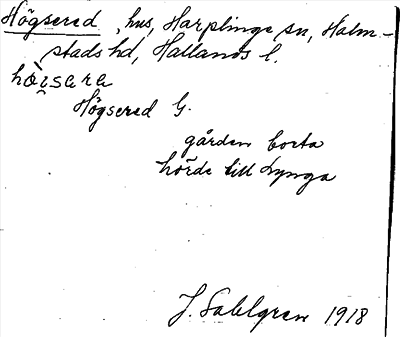 Högsered, hus, Harplinge sn, Halm-
stads hd, Hallands l.
Högsered G.
gården borta
hörde till Lynga
J. Sahlgren 1918